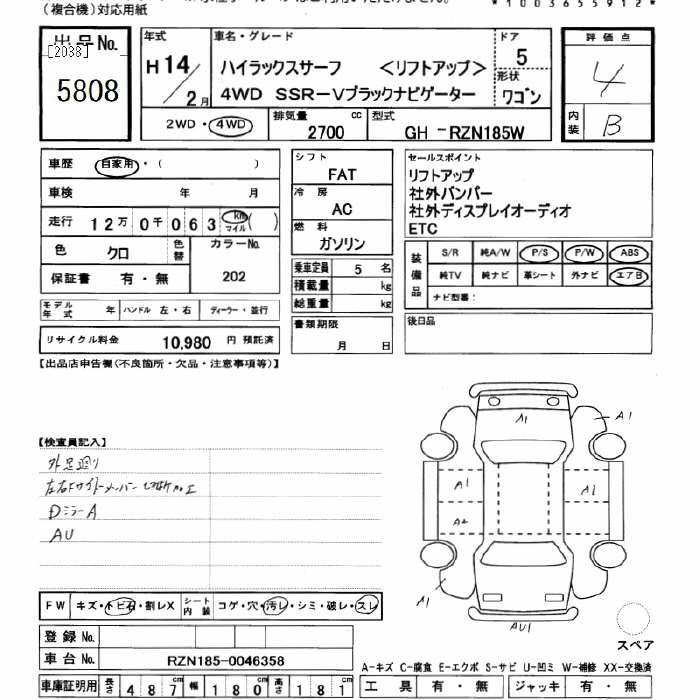 (複合機)対応用紙
*1003655912*
出品No.
[2038]
5808
年式
H14/2月
車名・グレード
ハイラックスサーフ <リフトアップ>
4WD SSR-Vブラックナビゲーター
ドア
5
形状
ワゴン
2WD・4WD
排気量
2700 cc
型式
GH-RZN185W
評価点
4
内装
B
車歴 自家用・( )
車検 年 月
走行 12万0千063 km マイル( )
色 クロ
色替
カラーNo.
202
保証書 有・無
モデル年式 年 ハンドル 左・右 ディーラー・並行
リサイクル料金 10,980 円 預託済
シフト
FAT
冷房
AC
燃料
ガソリン
乗車定員 5 名
積載量 kg
総重量 kg
書類期限
月 日
セールスポイント
リフトアップ
社外バンパー
社外ディスプレイオーディオ
ETC
装備品
S/R 純A/W P/S P/W ABS
純TV 純ナビ 革シート 外ナビ エアB
ナビ型番:
後日品
【出品店申告欄(不良箇所・欠品・注意事項等)】
【検査員記入】
外足廻り
左右Fサイドメンバー切断加工
DミラーA
AU
FW キズ・トビ石・割レX シート内装 コゲ・穴・汚レ・シミ・破レ・スレ
登録No.
車台No. RZN185-0046358
車庫証明用 長さ 487 幅 180 高さ 181
A1
A1
A1
A1
A2
A1
AU1
スペア
A-キズ C-腐食 E-エクボ S-サビ U-凹ミ W-補修 XX-交換済
工具 有・無 ジャッキ 有・無